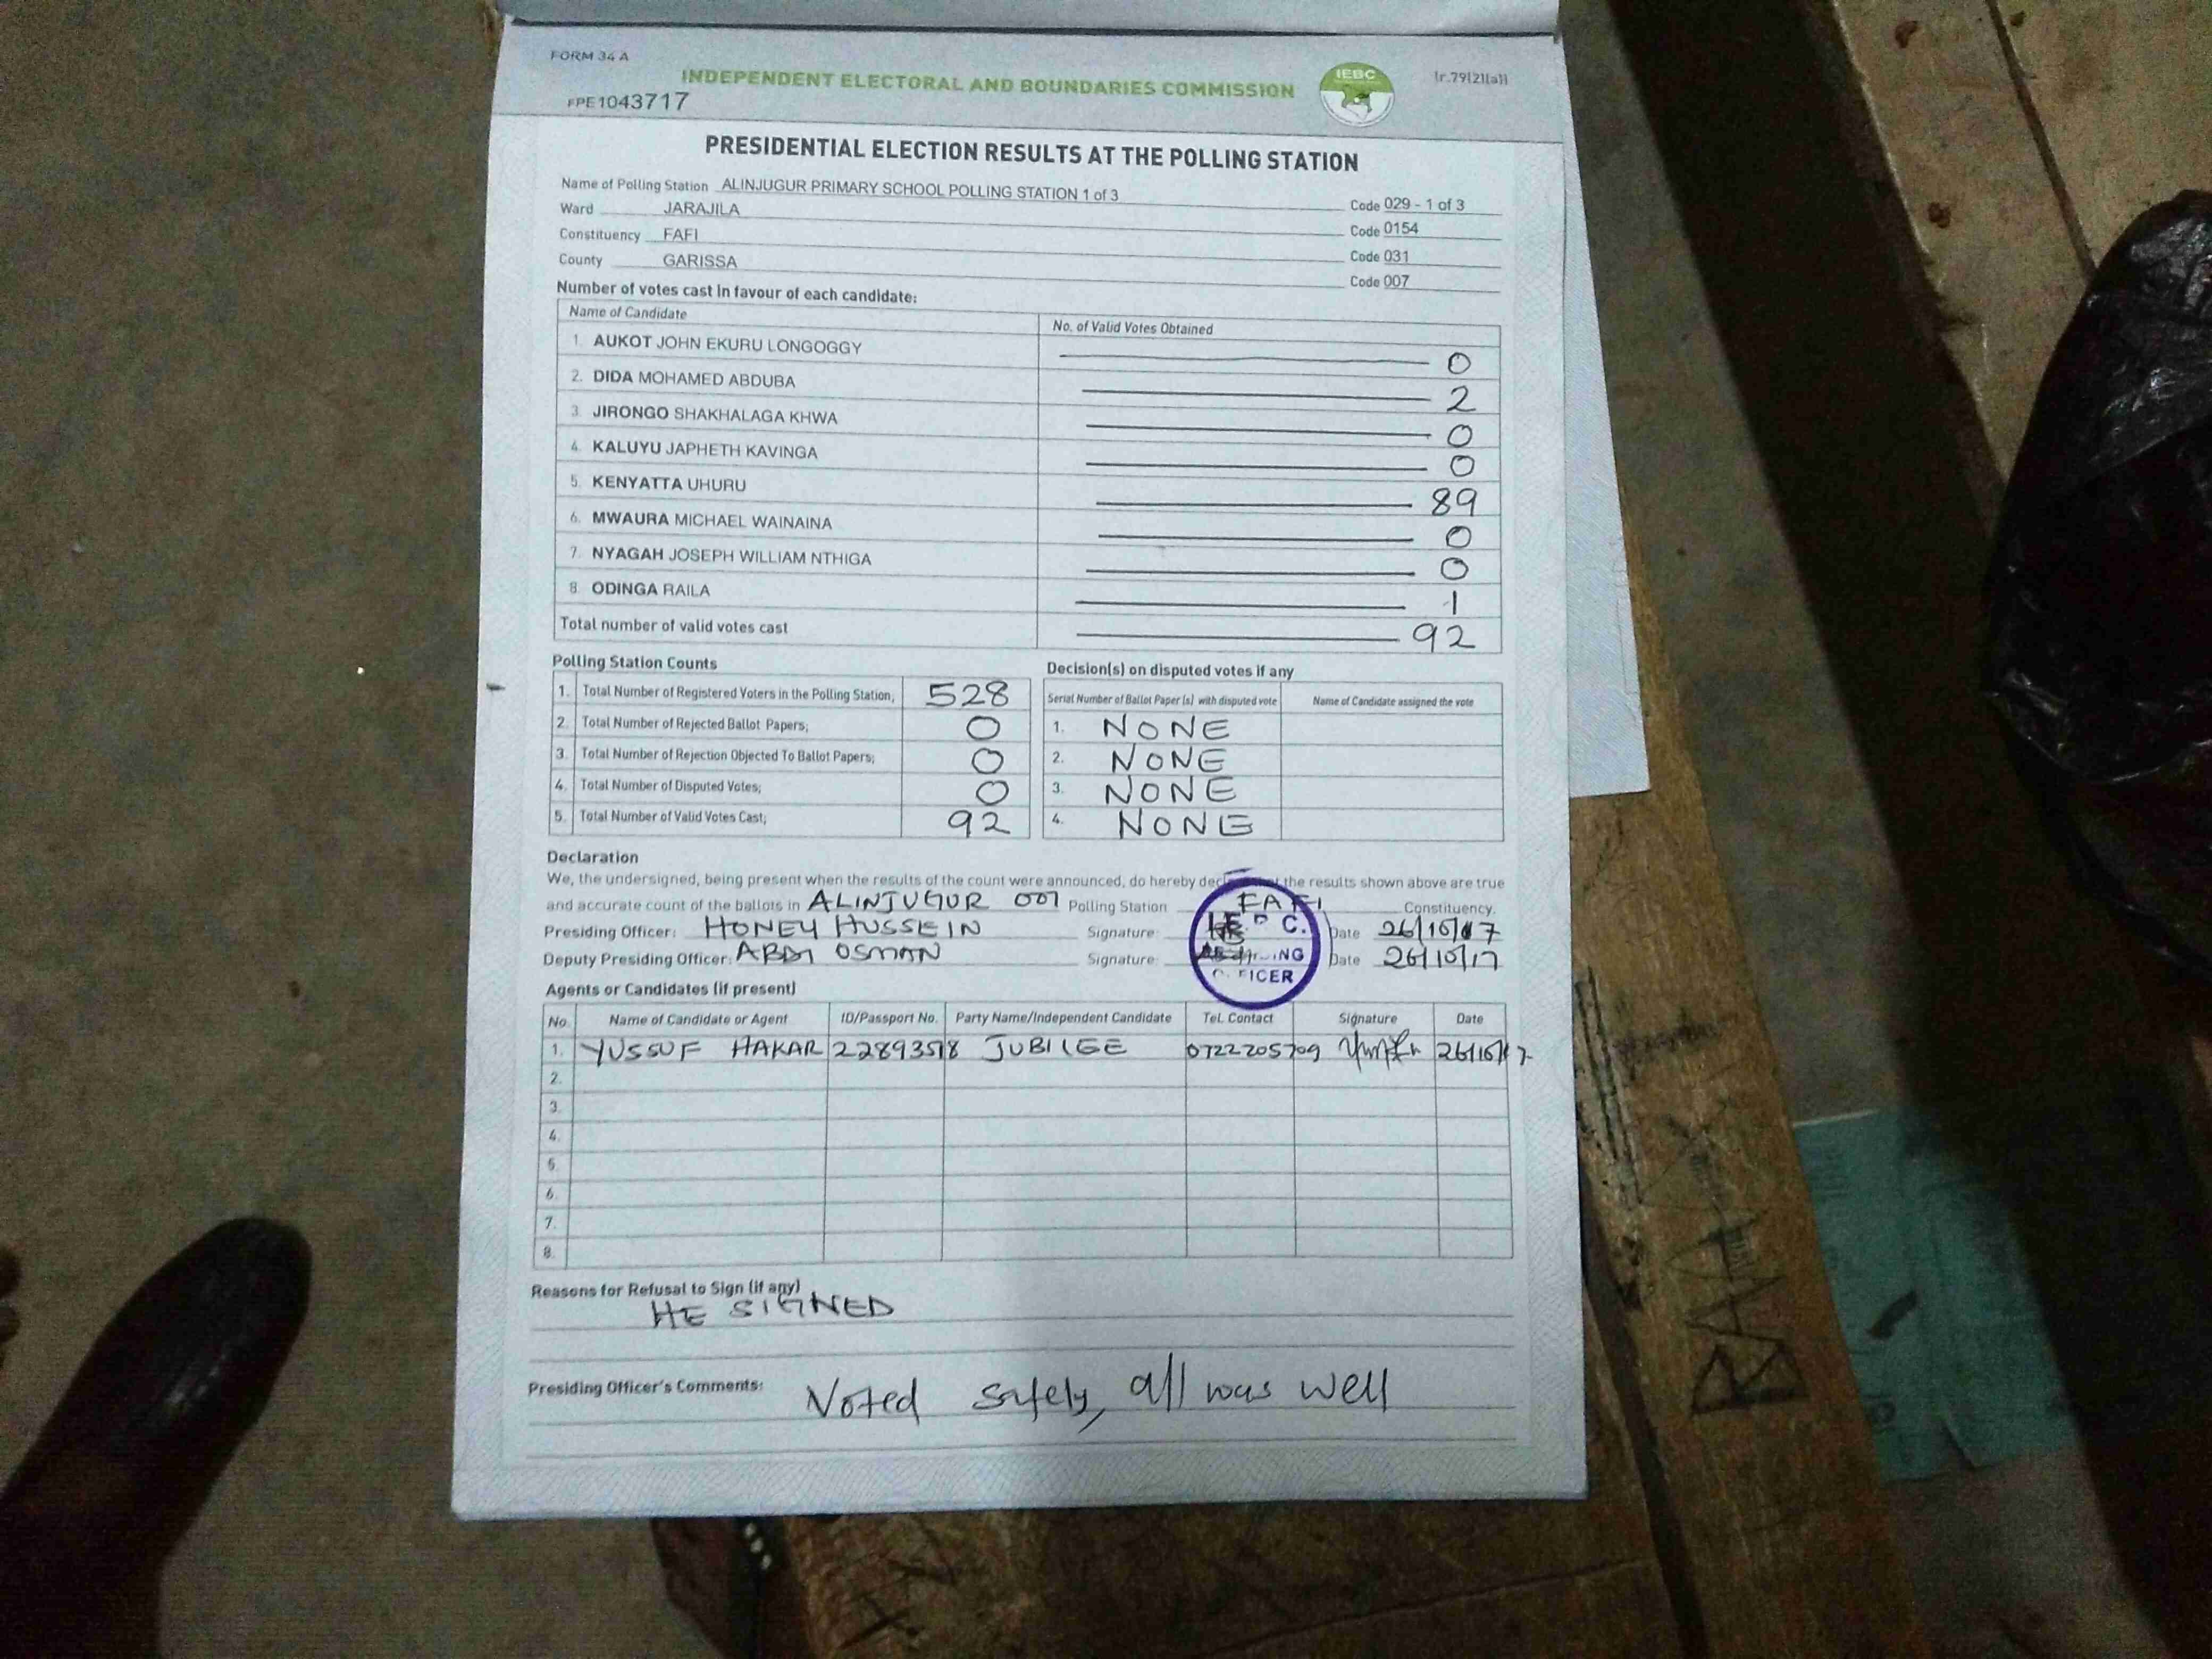 FORM 34 A
INDEPENDENT ELECTORAL AND BOUNDARIES COMMISSION
IEBC
(r.79(2)(a))
FPE1043717
PRESIDENTIAL ELECTION RESULTS AT THE POLLING STATION
Name of Polling Station ALINJUGUR PRIMARY SCHOOL POLLING STATION 1 of 3 Code 029 - 1 of 3
Ward JARAJILA Code 0154
Constituency FAFI Code 031
County GARISSA Code 007
Number of votes cast in favour of each candidate:
Name of Candidate No. of Valid Votes Obtained
1. AUKOT JOHN EKURU LONGOGGY 0
2. DIDA MOHAMED ABDUBA 2
3. JIRONGO SHAKHALAGA KHWA 0
4. KALUYU JAPHETH KAVINGA 0
5. KENYATTA UHURU 89
6. MWAURA MICHAEL WAINAINA 0
7. NYAGAH JOSEPH WILLIAM NTHIGA 0
8. ODINGA RAILA 1
Total number of valid votes cast 92
Polling Station Counts
1. Total Number of Registered Voters in the Polling Station; 528
2. Total Number of Rejected Ballot Papers; 0
3. Total Number of Rejection Objected To Ballot Papers; 0
4. Total Number of Disputed Votes; 0
5. Total Number of Valid Votes Cast; 92
Decision(s) on disputed votes if any
Serial Number of Ballot Paper (s) with disputed vote Name of Candidate assigned the vote
1. NONE
2. NONE
3. NONE
4. NONE
Declaration
We, the undersigned, being present when the results of the count were announced, do hereby the results shown above are true
and accurate count of the ballots in ALINJUGUR 001 Polling Station FAFI Constituency.
Presiding Officer: HONEY HUSSEIN Signature: Date 26/10/17
Deputy Presiding Officer: ABDI OSMAN Signature: Date 26/10/17
Agents or Candidates (if present)
No. Name of Candidate or Agent ID/Passport No. Party Name/Independent Candidate Tel. Contact Signature Date
1. YUSSUF HAKAR 22893518 JUBILEE 0722205709 26/10/17
2.
3.
4.
5.
6.
7.
8.
Reasons for Refusal to Sign (if any)
HE SIGNED
Presiding Officer's Comments: Noted safely, all was well